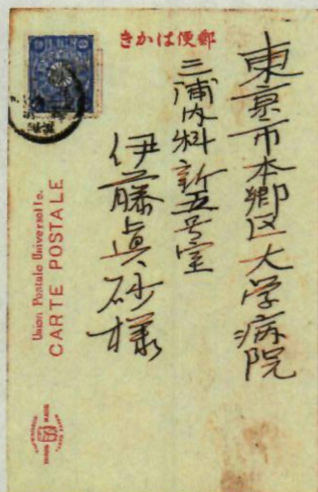 きかは便郵
東京市本郷区大学病院
三浦内科新五号室
伊藤眞砂様
Union Postale Universelle.
CARTE POSTALE